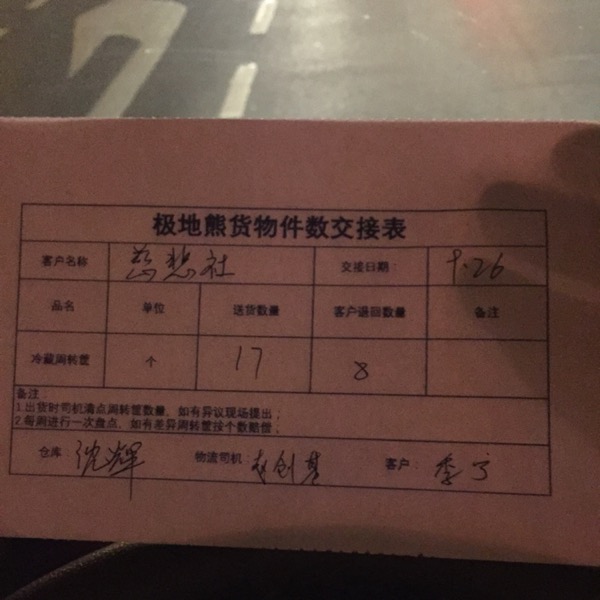 极地熊货物件数交接表
客户名称 慈悲社 交接日期: 9.26
品名 单位 送货数量 客户退回数量 备注
冷藏周转筐 个 17 8
备注:
1.出货时司机清点周转筐数量,如有异议现场提出;
2.每周进行一次盘点,如有差异周转筐按个数赔偿;
仓库: 沈辉 物流司机: 客户: 季宁